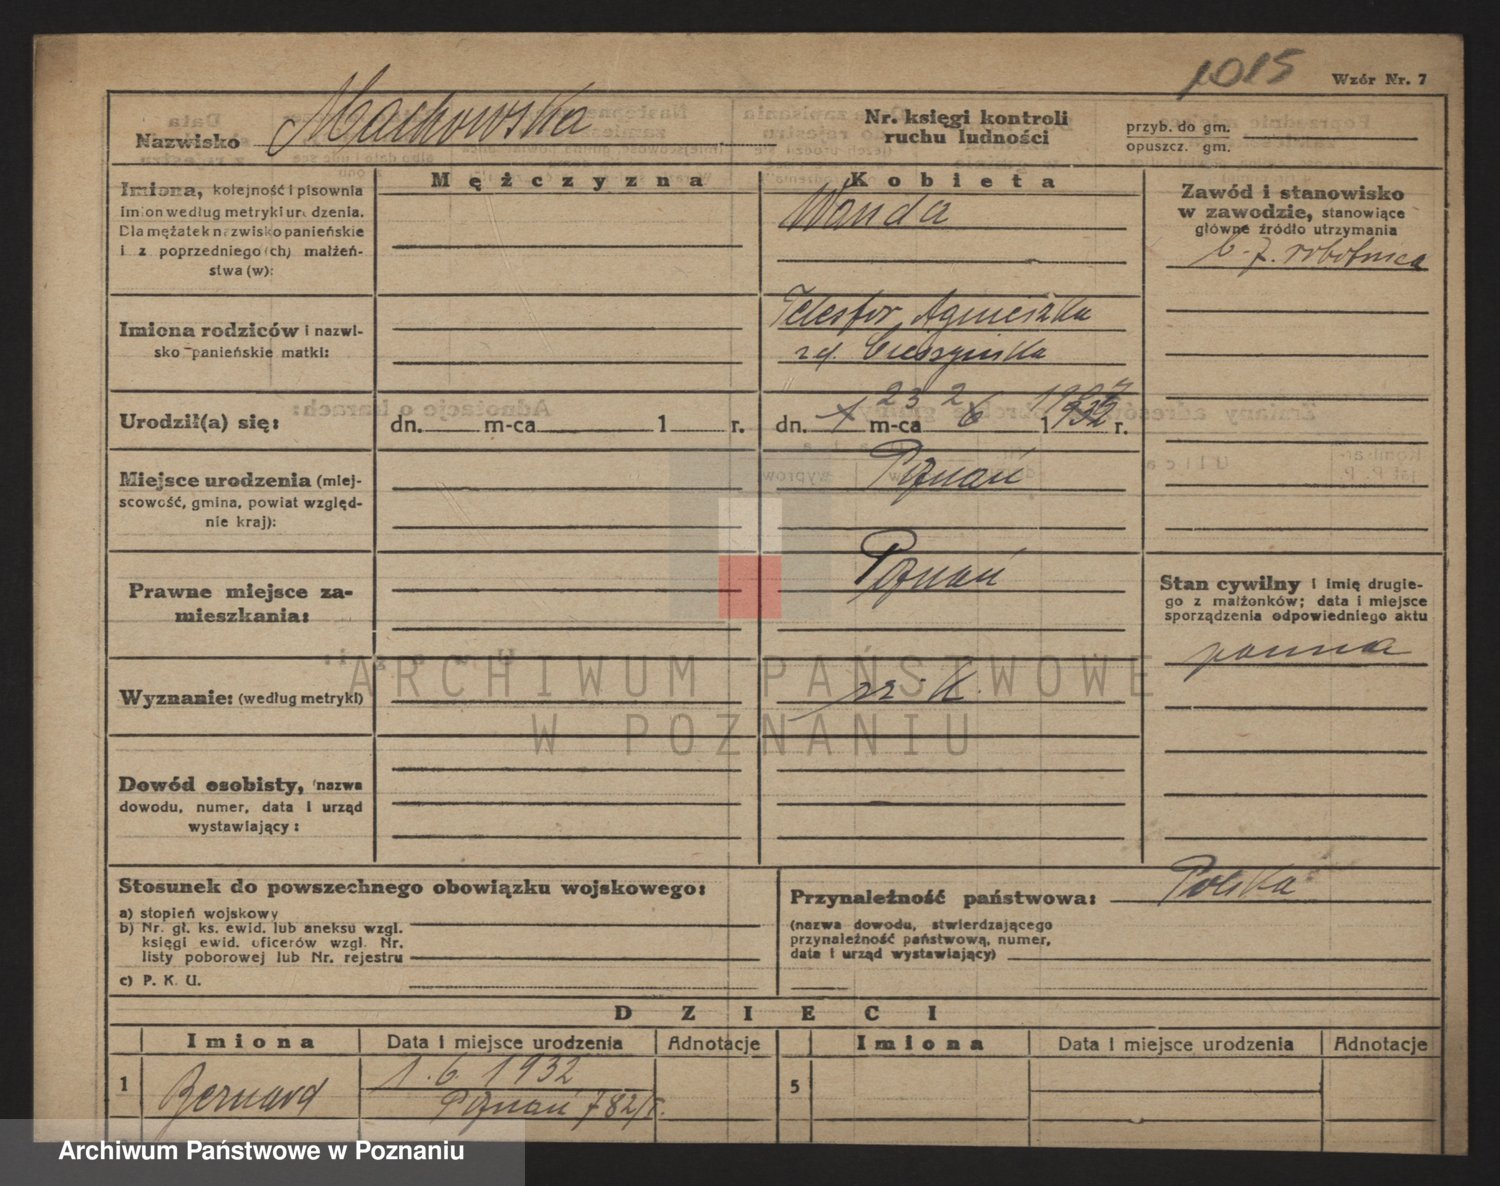 1015
Wzór Nr. 7
Nazwisko Machowska
Nr. księgi kontroli
ruchu ludności
przyb. do gm.
opuszcz. gm.
Imiona, kolejność i pisownia
imion według metryki urodzenia.
Dla mężatek nazwisko panieńskie
i z poprzedniego (ch) małżeń-
stwa (w):
Mężczyzna
Kobieta
Wanda
Zawód i stanowisko
w zawodzie, stanowiące
główne źródło utrzymania
b. z. robotnica
Imiona rodziców i nazwi-
sko panieńskie matki:
Telesfor Agnieszka
Urodził(a) się:
dn. m-ca 1 r.
23 2
dn. 1 m-ca 6 1932 r.
Miejsce urodzenia (miej-
scowość, gmina, powiat względ-
nie kraj):
Poznań
Prawne miejsce za-
mieszkania:
Poznań
Stan cywilny i imię drugie-
go z małżonków; data i miejsce
sporządzenia odpowiedniego aktu
panna
Wyznanie: (według metryki)
rz. K.
ARCHIWUM PAŃSTWOWE
W POZNANIU
Dowód osobisty, (nazwa
dowodu, numer, data i urząd
wystawiający:
Stosunek do powszechnego obowiązku wojskowego:
a) stopień wojskowy
b) Nr. gł. ks. ewid. lub aneksu wzgl.
księgi ewid. oficerów wzgl. Nr.
listy poborowej lub Nr. rejestru
c) P. K. U.
Przynależność państwowa: Polska
(nazwa dowodu, stwierdzającego
przynależność państwową, numer,
data i urząd wystawiający)
DZIECI
Imiona Data i miejsce urodzenia Adnotacje Imiona Data i miejsce urodzenia Adnotacje
1 Bernard 1. 6. 1932 5
Poznań 782/r.
Archiwum Państwowe w Poznaniu